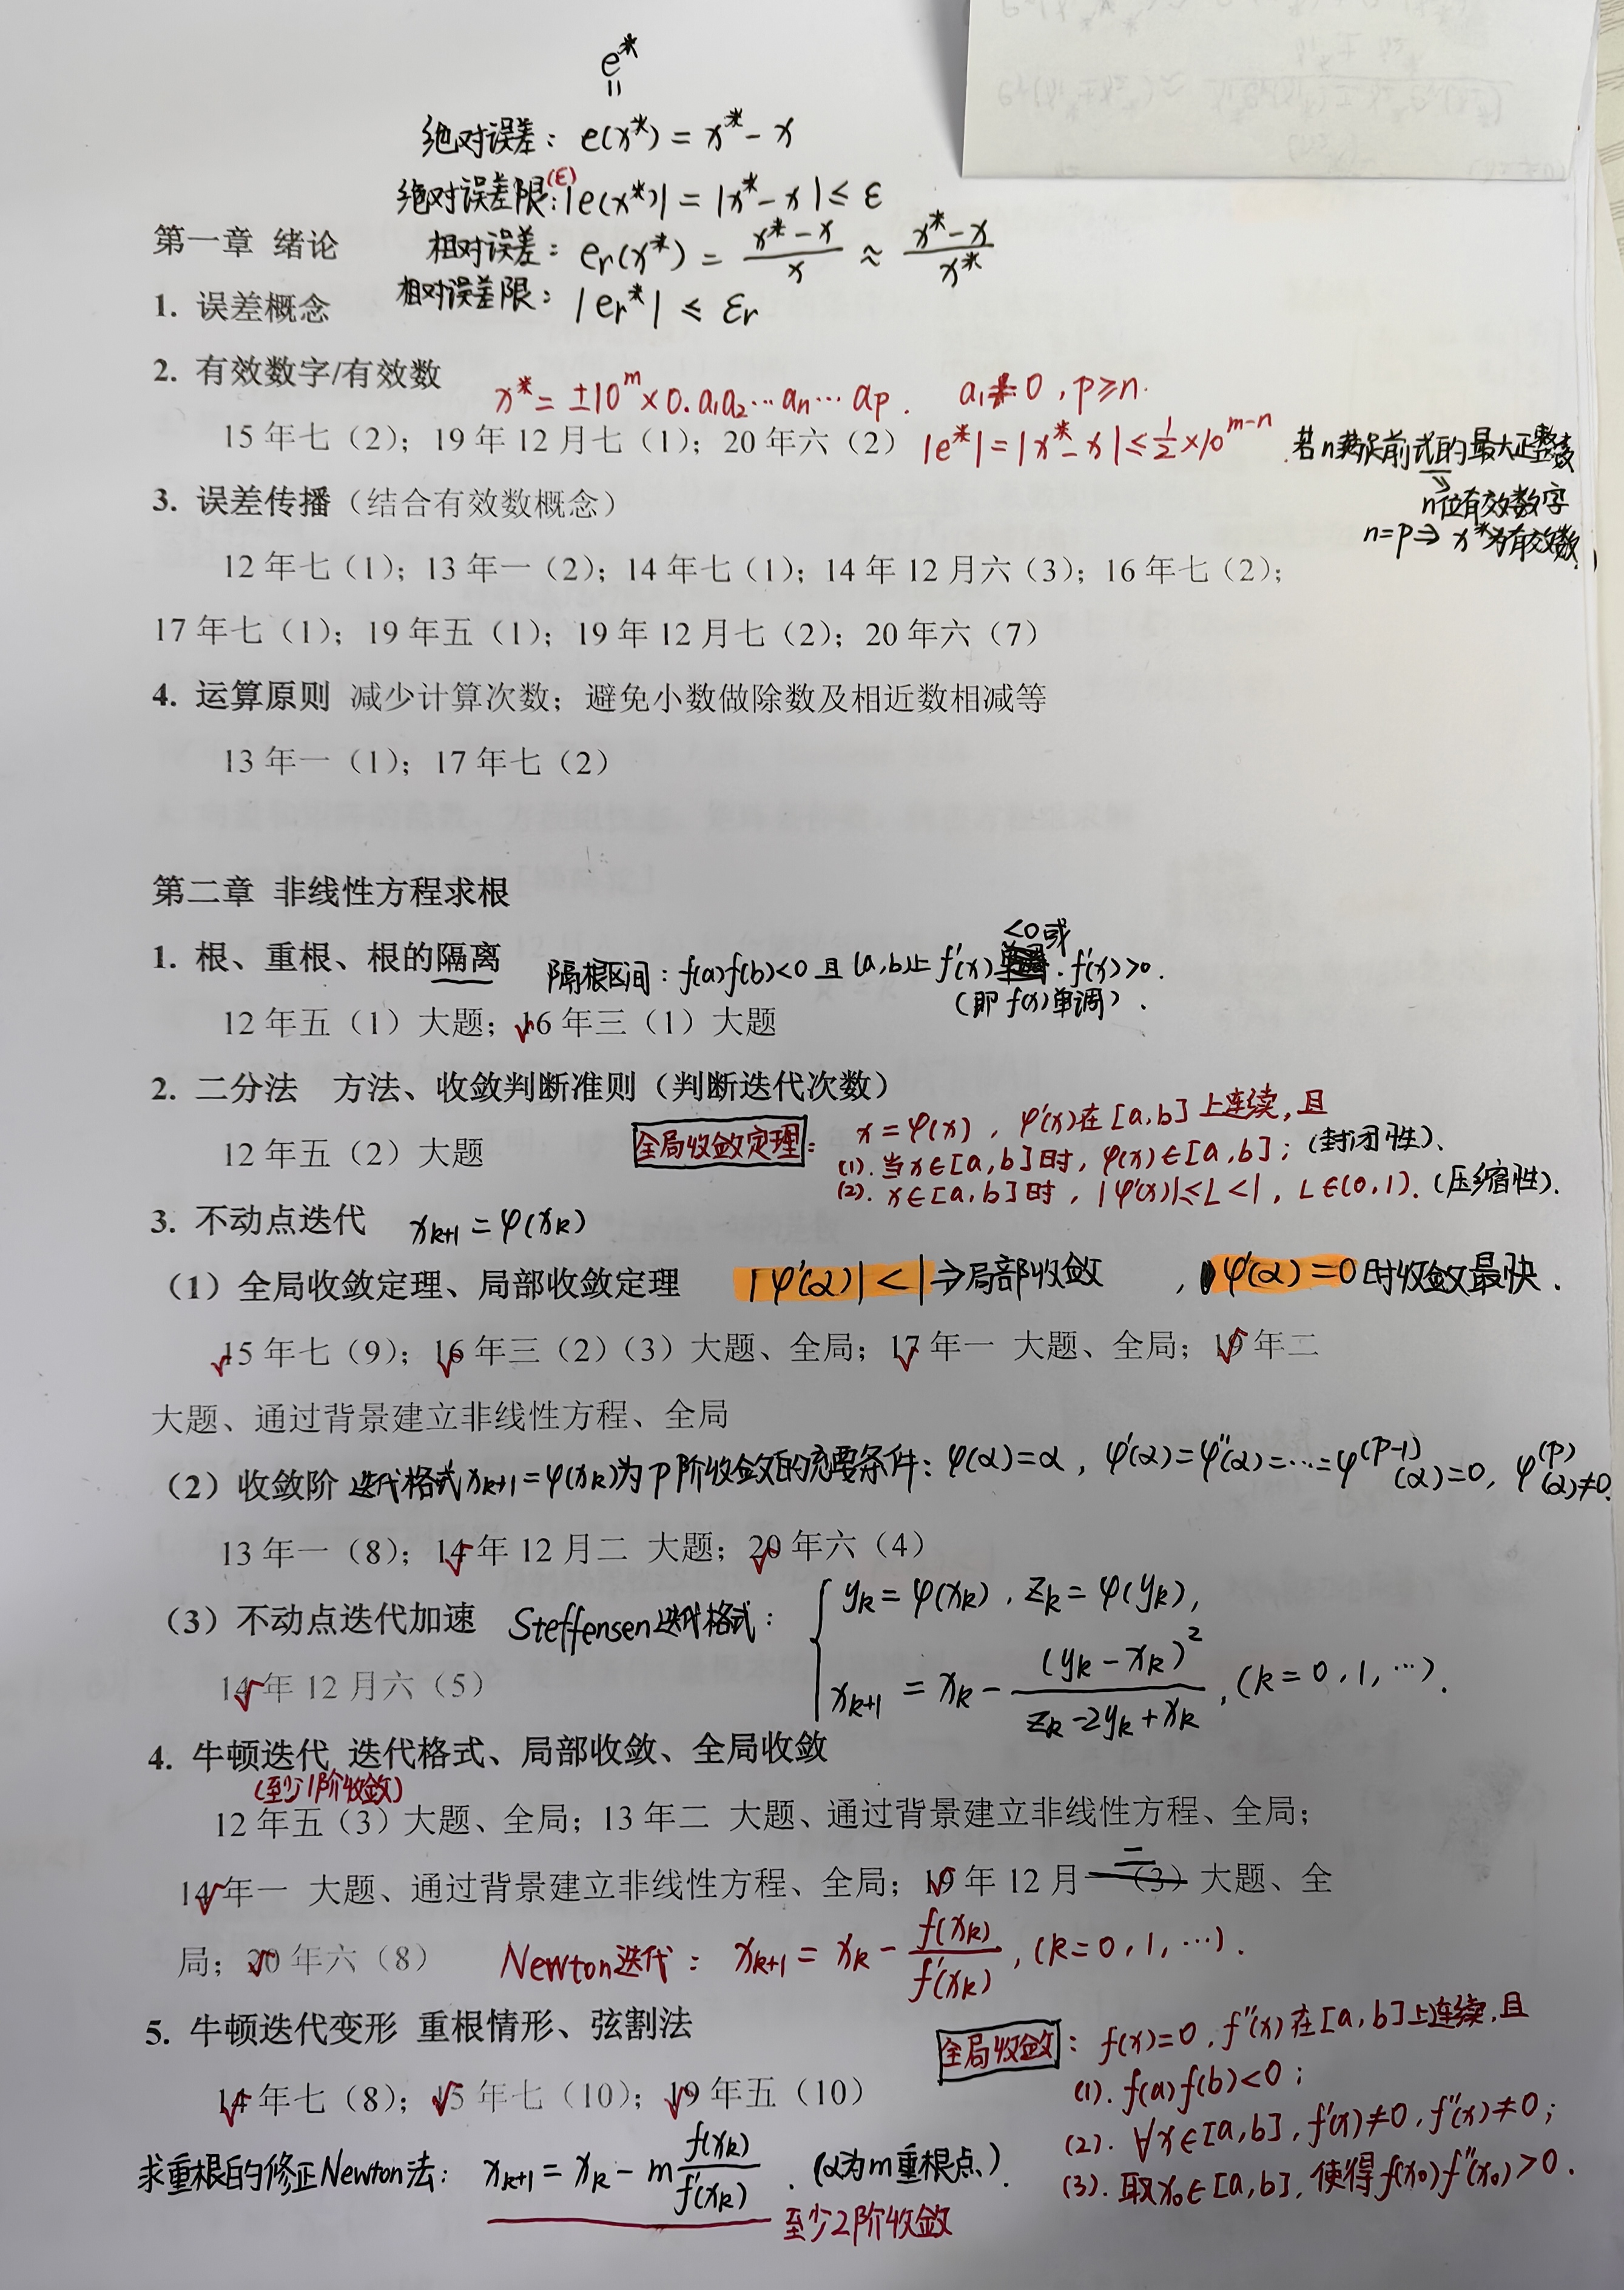 e*
=
绝对误差: e(x*) = x* - x
绝对误差限:(ε) |e(x*)| = |x* - x| ≤ ε
第一章 绪论
相对误差: er(x*) = (x* - x)/x ≈ (x* - x)/x*
相对误差限: |er*| ≤ εr
1. 误差概念
2. 有效数字/有效数
x* = ±10^m × 0.a₁a₂…an…ap. a₁≠0, p≥n.
15 年七（2）；19 年 12 月七（1）；20 年六（2）
|e*| = |x* - x| ≤ 1/2 × 10^(m-n)
若n满足前式的最大正整数
⇒
n位有效数字
n=p ⇒ x*为有效数.
3. 误差传播（结合有效数概念）
12 年七（1）；13 年一（2）；14 年七（1）；14 年 12 月六（3）；16 年七（2）；
17 年七（1）；19 年五（1）；19 年 12 月七（2）；20 年六（7）
4. 运算原则 减少计算次数；避免小数做除数及相近数相减等
13 年一（1）；17 年七（2）
第二章 非线性方程求根
1. 根、重根、根的隔离
隔根区间: f(a)f(b)<0 且 (a,b)上 f'(x) <0 或 f'(x)>0.
(即 f(x)单调).
12 年五（1）大题；16 年三（1）大题
2. 二分法 方法、收敛判断准则（判断迭代次数）
12 年五（2）大题
全局收敛定理: x = φ(x), φ'(x)在[a,b]上连续,且
(1). 当x∈[a,b]时, φ(x)∈[a,b]; (封闭性).
(2). x∈[a,b]时, |φ'(x)|≤L<1, L∈(0,1). (压缩性).
3. 不动点迭代 xk+1 = φ(xk)
（1）全局收敛定理、局部收敛定理 |φ'(α)|<1 ⇒局部收敛 , φ'(α)=0时收敛最快.
15 年七（9）；16 年三（2）（3）大题、全局；17 年一 大题、全局；19 年二
大题、通过背景建立非线性方程、全局
（2）收敛阶 迭代格式xk+1=φ(xk)为p阶收敛的充要条件: φ(α)=α, φ'(α)=φ''(α)=…=φ^(p-1)(α)=0, φ^(p)(α)≠0.
13 年一（8）；14 年 12 月二 大题；20 年六（4）
（3）不动点迭代加速 Steffensen迭代格式: { yk = φ(xk), zk = φ(yk),
xk+1 = xk - (yk - xk)²/(zk - 2yk + xk), (k=0,1,…).
14 年 12 月六（5）
4. 牛顿迭代 迭代格式、局部收敛、全局收敛
(至少1阶收敛)
12 年五（3）大题、全局；13 年二 大题、通过背景建立非线性方程、全局；
14 年一 大题、通过背景建立非线性方程、全局；19 年 12 月二 大题、全
局；20 年六（8）
Newton迭代: xk+1 = xk - f(xk)/f'(xk), (k=0,1,…).
5. 牛顿迭代变形 重根情形、弦割法
14 年七（8）；15 年七（10）；19 年五（10）
全局收敛: f(x)=0, f''(x)在[a,b]上连续,且
(1). f(a)f(b)<0;
(2). ∀x∈[a,b], f'(x)≠0, f''(x)≠0;
(3). 取x₀∈[a,b], 使得f(x₀)f''(x₀)>0.
求重根的修正Newton法: xk+1 = xk - m f(xk)/f'(xk). (α为m重根点).
至少2阶收敛